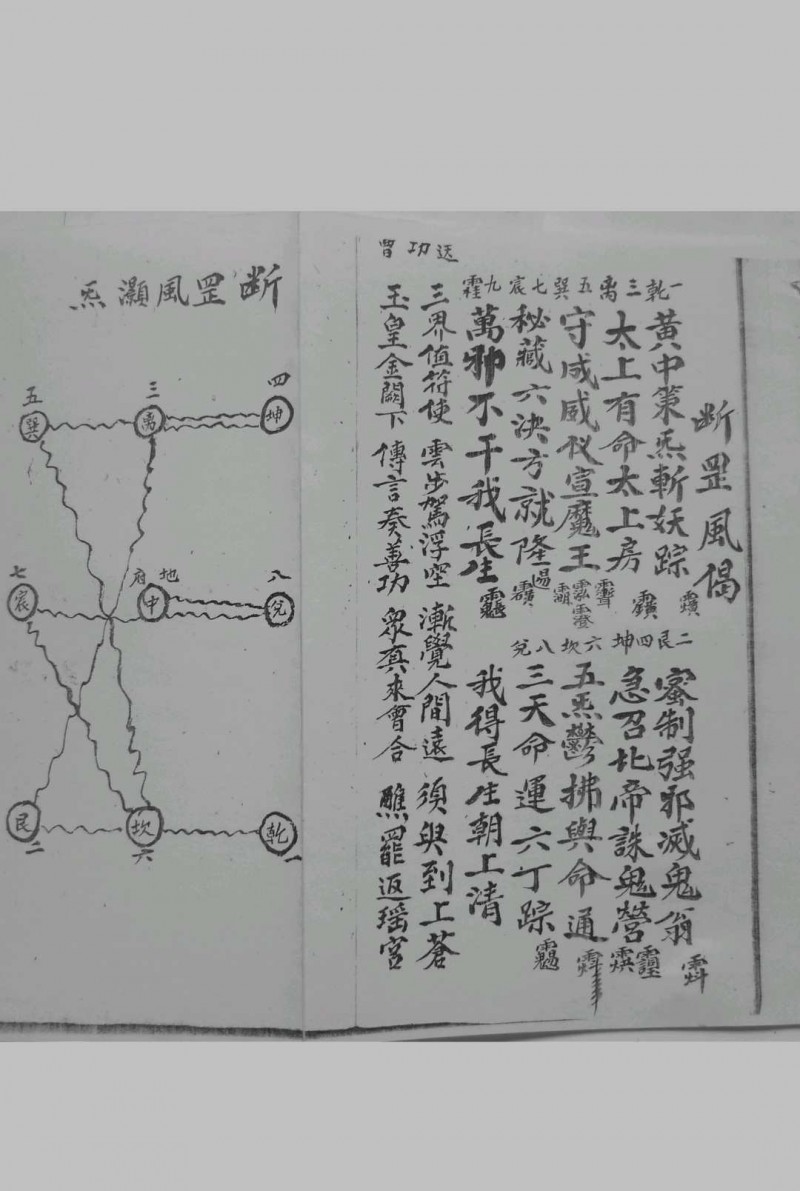 断罡風偈
一乾 黄中策炁斬妖踪
二艮 蜜制强邪滅鬼翁
三离 太上有命太上房
四坤 急召北帝誅鬼營
五巽 守咸威仪宣魔王
六坎 五炁鬱拂與命通
七宸 秘藏六決方就降
八兌 三天命運六丁踪
九 萬邪不干我長生
我得長生朝上清
送功曺
三界值符使 雲步駕浮空 漸覺人間遠 須臾到上蒼
玉皇金闕下 傳言奏善功 衆真來會合 醮罷返瑶宫
断罡風灝炁
四 坤
三 离
五 巽
八 兌
地府 中
七 宸
一 乾
六 坎
二 艮